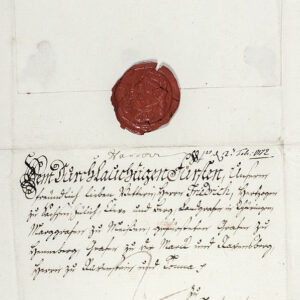 Dem Durchlauchtigen Fürsten, Unserm
freundlich lieben Vettern, Herrn Friedrich, Hertzogen
zu Sachsen, Jülich, Cleve und Berg, Landgrafen in Thüringen,
Marggrafen zu Meissen, Grafen zu
Henneberg, Grafen zu der Marck und Ravensberg,
Herrn zu Ravenstein und Tonna
zu